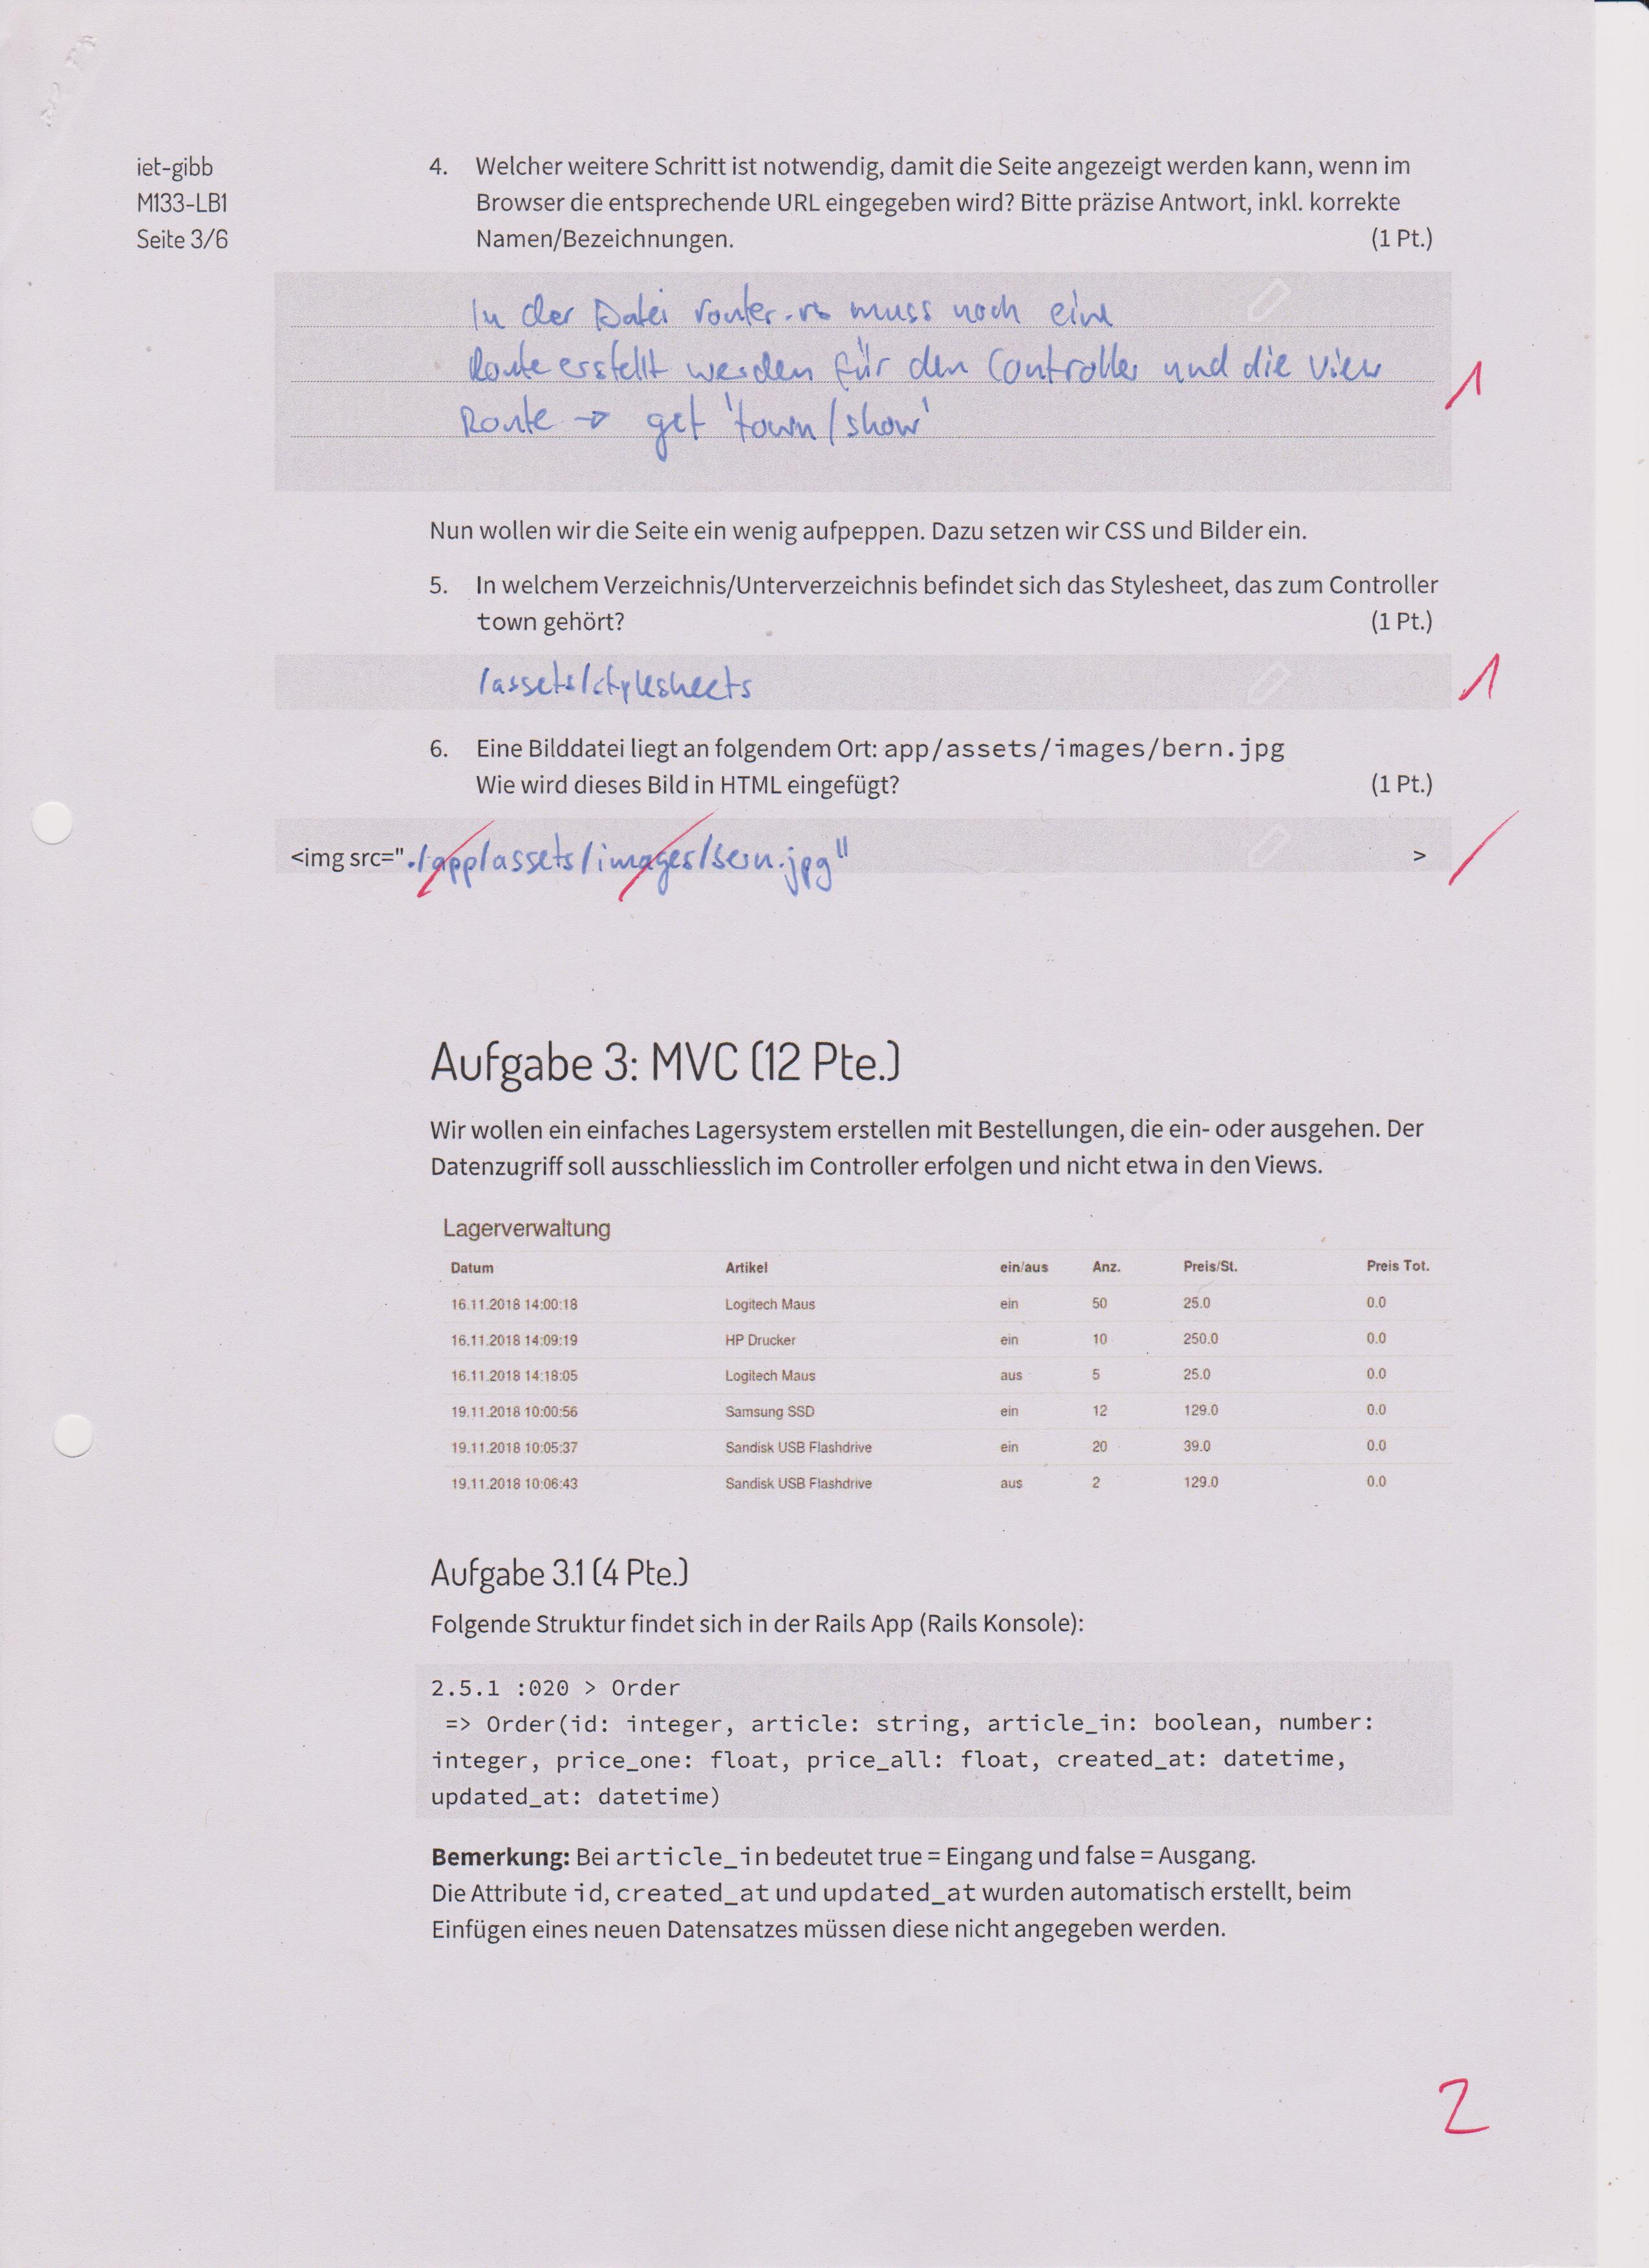 iet-gibb
M133-LB1
Seite 3/6
4. Welcher weitere Schritt ist notwendig, damit die Seite angezeigt werden kann, wenn im
Browser die entsprechende URL eingegeben wird? Bitte präzise Antwort, inkl. korrekte
Namen/Bezeichnungen. (1 Pt.)
In der Datei router.rb muss noch eine
Route erstellt werden für den Controller und die View
Route → get 'town/show'
1
Nun wollen wir die Seite ein wenig aufpeppen. Dazu setzen wir CSS und Bilder ein.
5. In welchem Verzeichnis/Unterverzeichnis befindet sich das Stylesheet, das zum Controller
town gehört? (1 Pt.)
/assets/stylesheets
1
6. Eine Bilddatei liegt an folgendem Ort: app/assets/images/bern.jpg
Wie wird dieses Bild in HTML eingefügt? (1 Pt.)
<img src="./app/assets/images/bern.jpg" >
Aufgabe 3: MVC (12 Pte.)
Wir wollen ein einfaches Lagersystem erstellen mit Bestellungen, die ein- oder ausgehen. Der
Datenzugriff soll ausschliesslich im Controller erfolgen und nicht etwa in den Views.
Lagerverwaltung
Datum Artikel ein/aus Anz. Preis/St. Preis Tot.
16.11.2018 14:00:18 Logitech Maus ein 50 25.0 0.0
16.11.2018 14:09:19 HP Drucker ein 10 250.0 0.0
16.11.2018 14:18:05 Logitech Maus aus 5 25.0 0.0
19.11.2018 10:00:56 Samsung SSD ein 12 129.0 0.0
19.11.2018 10:05:37 Sandisk USB Flashdrive ein 20 39.0 0.0
19.11.2018 10:06:43 Sandisk USB Flashdrive aus 2 129.0 0.0
Aufgabe 3.1 (4 Pte.)
Folgende Struktur findet sich in der Rails App (Rails Konsole):
2.5.1 :020 > Order
=> Order(id: integer, article: string, article_in: boolean, number:
integer, price_one: float, price_all: float, created_at: datetime,
updated_at: datetime)
Bemerkung: Bei article_in bedeutet true = Eingang und false = Ausgang.
Die Attribute id, created_at und updated_at wurden automatisch erstellt, beim
Einfügen eines neuen Datensatzes müssen diese nicht angegeben werden.
2